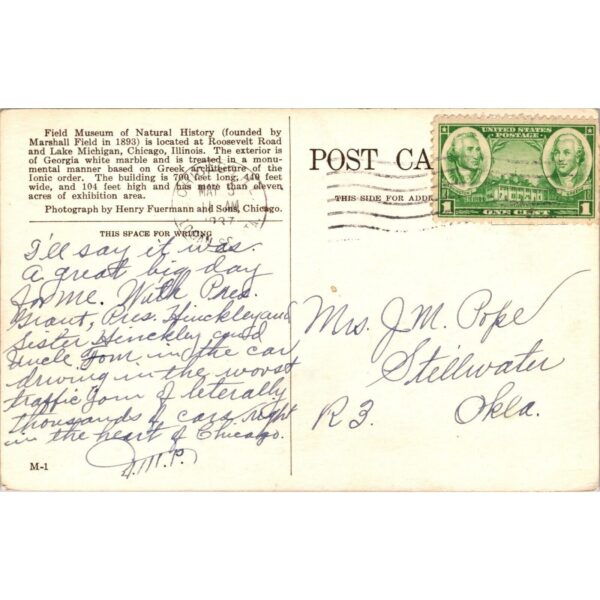 Field Museum of Natural History (founded by
Marshall Field in 1893) is located at Roosevelt Road
and Lake Michigan, Chicago, Illinois. The exterior is
of Georgia white marble and is treated in a monu-
mental manner based on Greek architecture of the
Ionic order. The building is 700 feet long, 440 feet
wide, and 104 feet high and has more than eleven
acres of exhibition area.
Photograph by Henry Fuermann and Sons, Chicago.
THIS SPACE FOR WRITING
I'll say it was
a great big day
for me. With Pres.
Grant, Pres. Hinckley and
Sister Hinckley and
Uncle Tom in the car
driving in the worst
traffic jom of leterally
thousands of cars right
in the heart of Chicago.
J.M.P.
M-1
POST CA
THIS SIDE FOR ADDR
MAY 3
AM
1937
UNITED STATES
POSTAGE
1 ONE CENT 1
Mrs. J.M. Pope
Stillwater
R3. Okla.